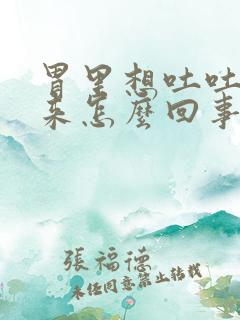 胃里想吐吐
来怎麼回事
張福德
未经同意禁止转载